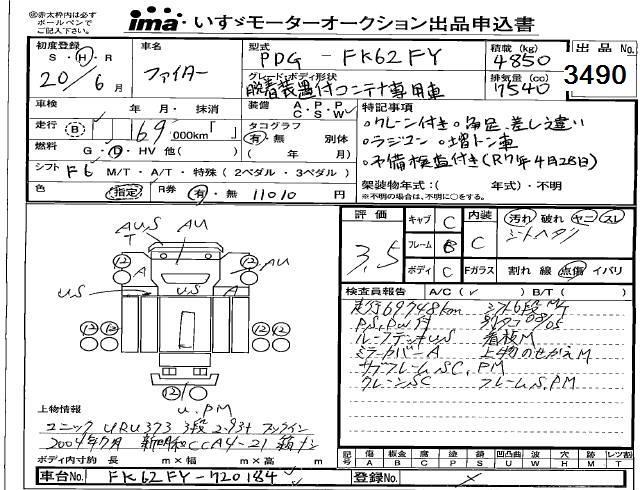 ㊟赤太枠内は必ず
ボールペンで
ご記入下さい。
ima いすゞモーターオークション出品申込書
初度登録
S・H・R
20/6月
車名
ファイター
型式
PDG-FK62FY
グレード・ボディ形状
脱着装置付コンテナ専用車
積載(kg)
4850
排気量(cc)
7540
出品No.
3490
車検 年 月・抹消
装備 A.P.P C.S.W
走行 B 69,000km
タコグラフ
有・無 別体
( 年 月)
燃料 G・D・HV 他( )
シフト F6 M/T・A/T・特殊(2ペダル・3ペダル)
色 (指定) R券 有・無 11010円
特記事項
・クレーン付き・
・ラジコン・増トン車
・予備検査付き(R7年4月28日)
架装物年式:( 年式)・不明
※不明の場合は、不明に○をする。
評価
3.5
キャブ C
フレーム B
ボディ C
内装 C
汚れ 破れ ヤニ スレ
シートヘタリ
Fガラス 割れ 線 点傷 イバリ
検査員報告 A/C(✓) B/T( )
走行69748km シフト6段M/T
P.S, P.W付
ルーフデッキU.S 看板M
ミラーカバーA 上物のせかえM
サブフレームSC, PM
クレーンSC フレームS, PM
AU.S
T
AU
12
A
A
12
AU
U.S
U.S
A
12 12
12 12
12
U.PM
上物情報
ユニック URU373 3段 2.93t フックイン
2004年7月 新明和CCA4-21 箱ナシ
ボディ内寸約 長 m×幅 m×高 m
記号 傷A 板金B 腐C 塗P 錆S 凹凸曲U 波W 穴H 跡M レンズ割T
車台No. FK62FY-720184
登録No.